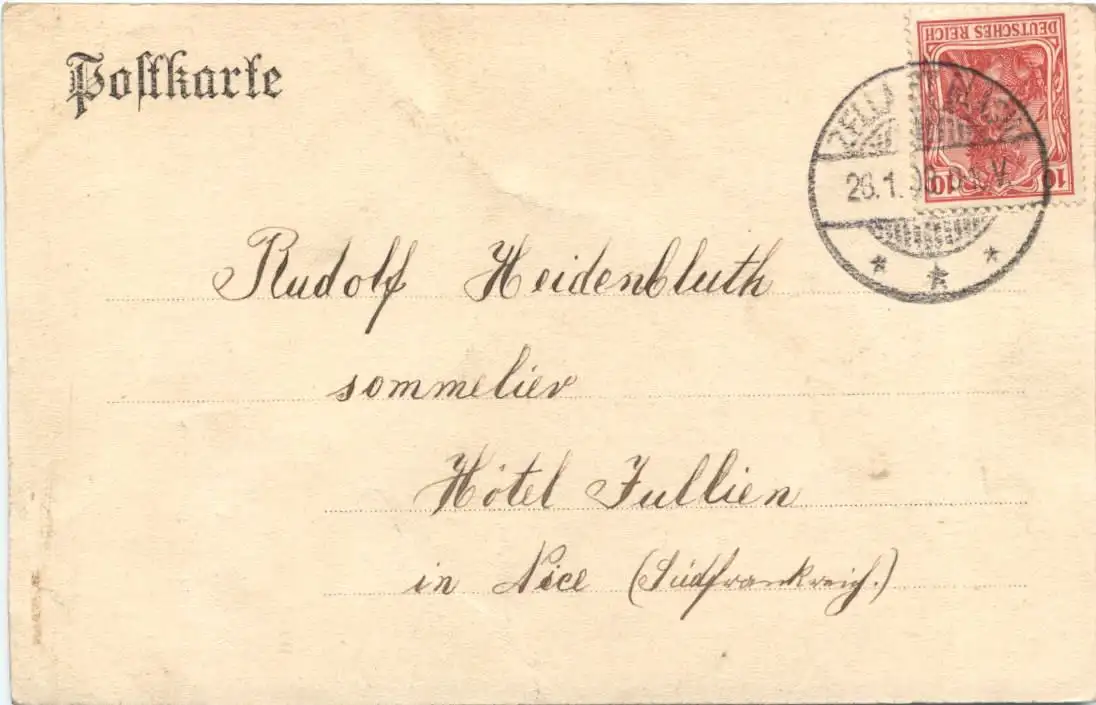 Postkarte
DEUTSCHES REICH
10 10
ZELLA
Rudolf Heidenbluth
sommelier
Hôtel Jullien
in Nice (Südfrankreich.)